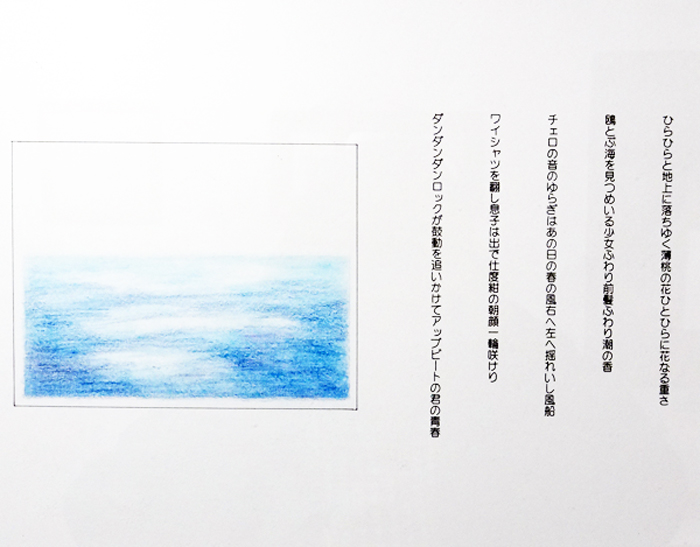 ひらひらと地上に落ちゆく薄桃の花ひとひらに花なる重さ
鴎とぶ海を見つめいる少女ふわり前髪ふわり潮の香
チェロの音のゆらぎはあの日の春の風右へ左へ揺れいし風船
ワイシャツを翻し息子は出で仕度紺の朝顔一輪咲けり
ダンダンダンロックが鼓動を追いかけてアップビートの君の青春